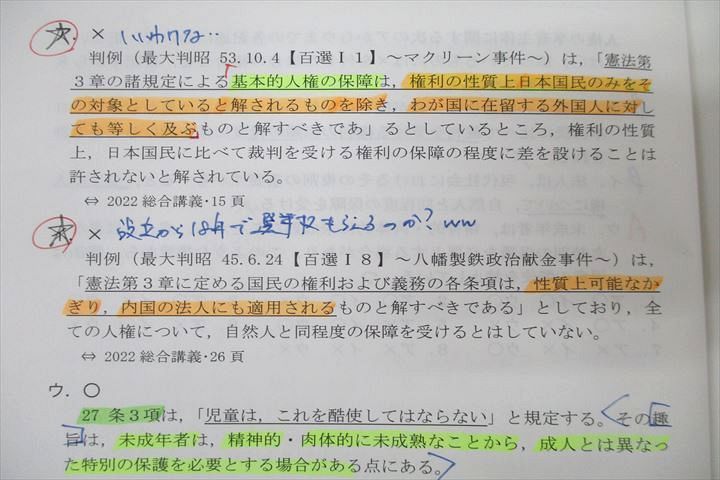 ア．× いいわけな…
判例（最大判昭 53.10.4【百選Ⅰ１】～マクリーン事件～）は，「憲法第
３章の諸規定による基本的人権の保障は，権利の性質上日本国民のみをそ
の対象としていると解されるものを除き，わが国に在留する外国人に対し
ても等しく及ぶものと解すべきであ」るとしているところ，権利の性質
上，日本国民に比べて裁判を受ける権利の保障の程度に差を設けることは
許されないと解されている。
⇔ 2022 総合講義・15 頁
× 設立から18年で選挙权もらえるのか？ww
判例（最大判昭 45.6.24【百選Ⅰ８】～八幡製鉄政治献金事件～）は，
「憲法第３章に定める国民の権利および義務の各条項は，性質上可能なか
ぎり，内国の法人にも適用されるものと解すべきである」としており，全
ての人権について，自然人と同程度の保障を受けるとはしていない。
⇔ 2022 総合講義・26 頁
ウ．〇
27 条３項は，「児童は，これを酷使してはならない」と規定する。その趣
旨は，未成年者は，精神的・肉体的に未成熟なことから，成人とは異なっ
た特別の保護を必要とする場合がある点にある。